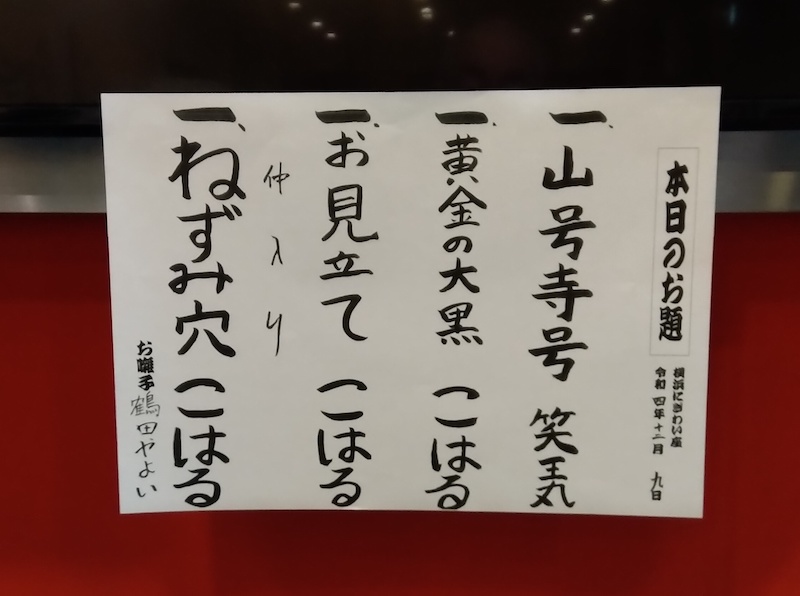 本日のお題
横浜にぎわい座
令和四年十二月 九日
一、山号寺号 笑王丸
一、黄金の大黒 こはる
一、お見立て こはる
仲入り
一、ねずみ穴 こはる
お囃子 鶴田やよい